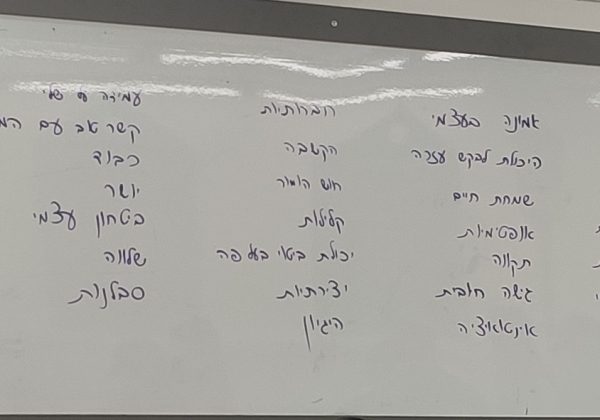 אמונה בעצמי
היכולת לבקש עזרה
שמחת חיים
אופטימיות
תקווה
גישה חיובית
אינטואיציה
חברותיות
הקשבה
חוש הומור
קלילות
יכולת ביטוי בעל פה
יצירתיות
היגיון
עמידה
קשר טוב עם
כבוד
יושר
ביטחון עצמי
שלווה
סבלנות